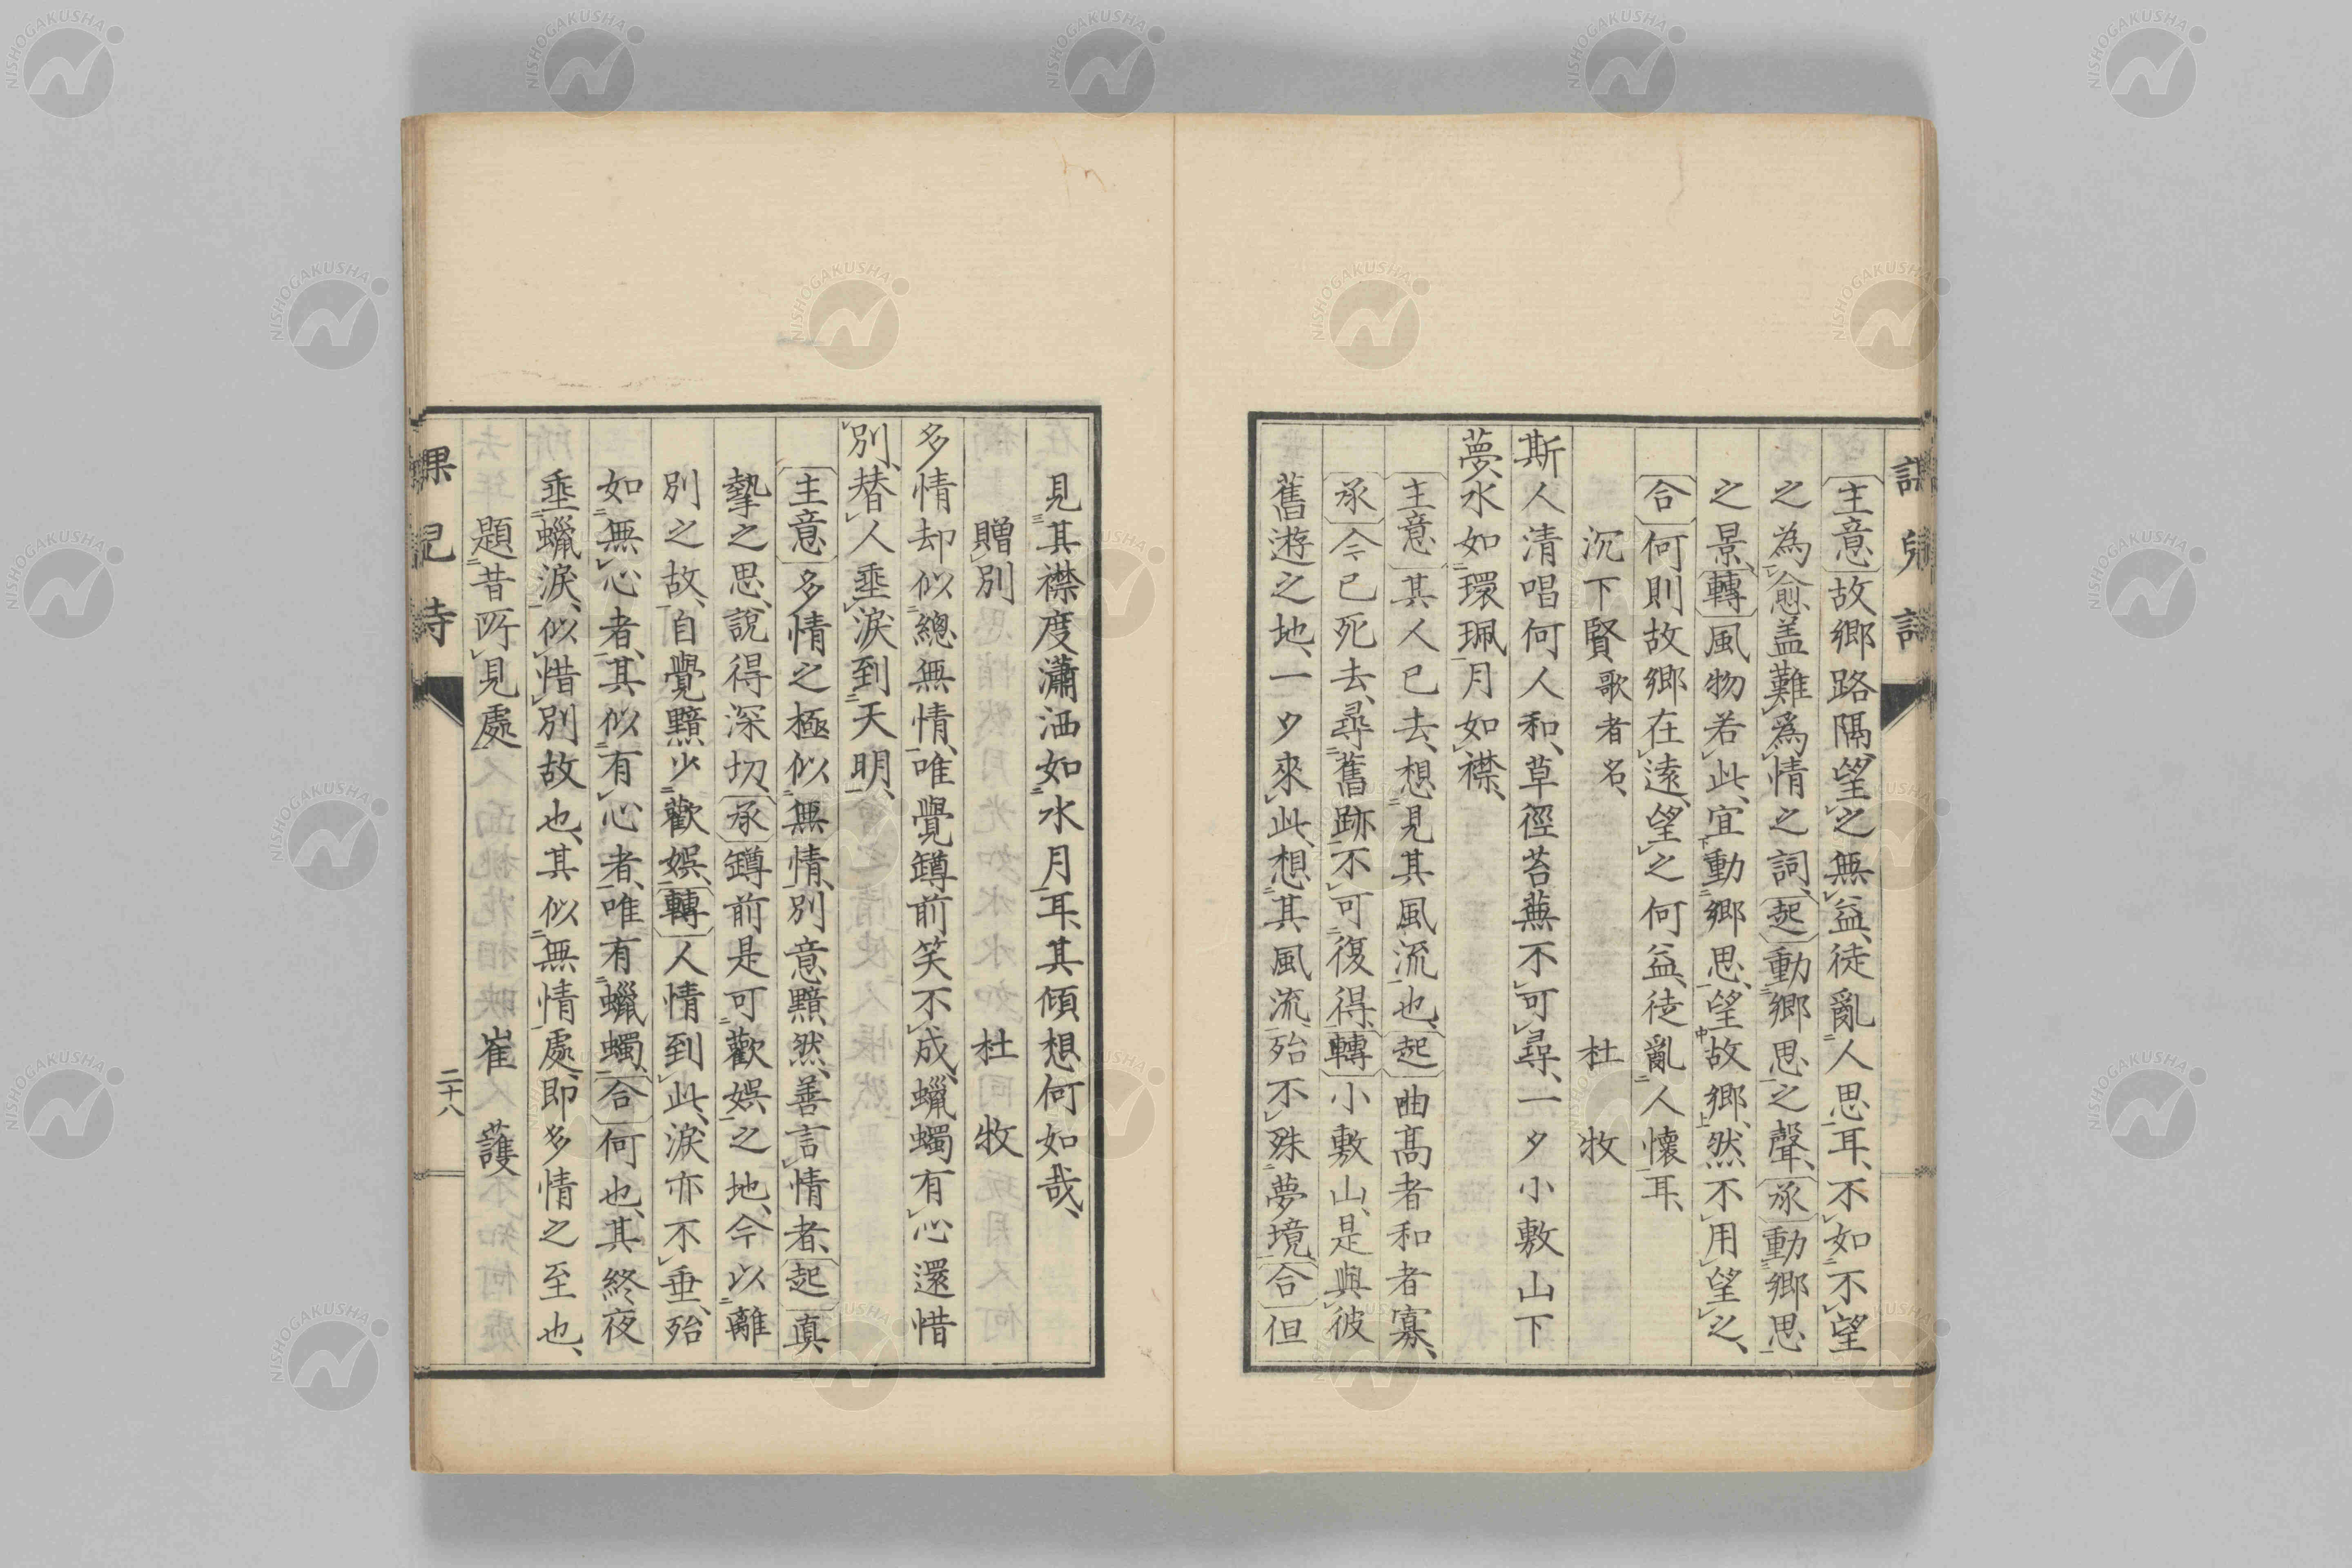 主意故鄉路隔、望之無益、徒亂人思耳、不如不望
之為愈盖難爲情之詞、起動鄉思之聲、承動鄉思
之景、轉風物若此、宜動鄉思、望故鄉、然不用望之、
合何則故鄉在遠、望之何益、徒亂人懷耳、
沉下賢歌者名、 杜牧
斯人清唱何人和、草徑苔蕪不可尋、一夕小敷山下
夢、水如環珮月如襟、
主意其人已去、想見其風流也、起曲髙者和者寡、
承今已死去、尋舊跡不可復得、轉小敷山、是與彼
舊遊之地、一夕來此、想其風流、殆不殊夢境、合但
見其襟度瀟洒如水月耳、其傾想何如哉、
贈別 杜牧
多情却似總無情、唯覺罇前笑不成、蠟蠋有心還惜
別、替人垂淚到天明、
主意多情之極似無情、別意黯然、善言情者、起真
摯之思、說得深切、承罇前是可歡娯之地、今以離
別之故、自覺黯少歡娯、轉人情到此、淚亦不垂、殆
如無心者、其似有心者、唯有蠟蠋、合何也、其終夜
垂蠟淚、似惜別故也、其似無情處、即多情之至也、
題昔所見處 崔護
二十八
NISHOGAKUSHA